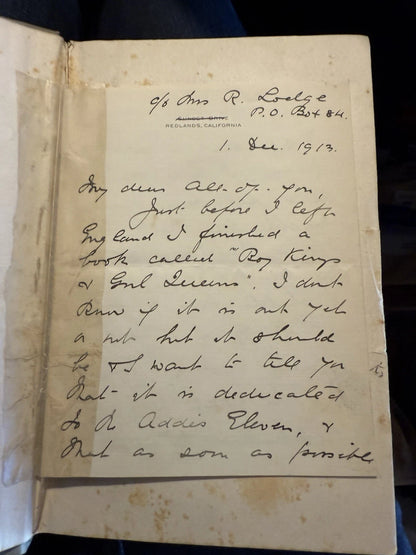 c/o Mrs R. Lodge
P.O. Box 84.
SUNSET DRIVE
REDLANDS, CALIFORNIA
1. Dec. 1913.
My dear All-of-you,
Just before I left
England I finished a
book called "Boy Kings
& Girl Queens". I don't
know if it is out yet
or not but it should
be & I want to tell you
that it is dedicated
to the Addis Eleven, &
that as soon as possible